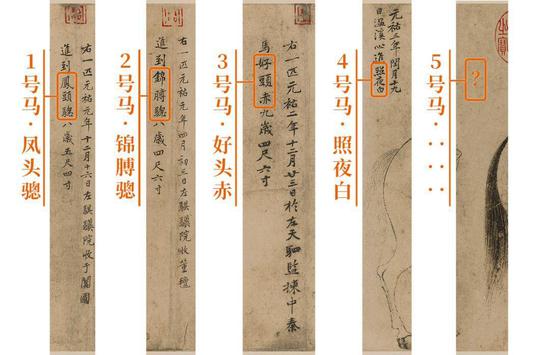 1号马·凤头骢
右一匹元祐元年十二月十六日左騏驥院收于闐國
進到鳳頭驄八歲五尺四寸
2号马·锦膊骢
右一匹元祐元年四月初三日左騏驥院收董氊
進到錦膊驄八歲四尺六寸
3号马·好头赤
右一匹元祐二年十二月廿三日於左天駟監揀中秦
馬好頭赤九歲四尺六寸
4号马·照夜白
元祐三年閏月十九
日溫溪心進照夜白
5号马·‥‥‥
?